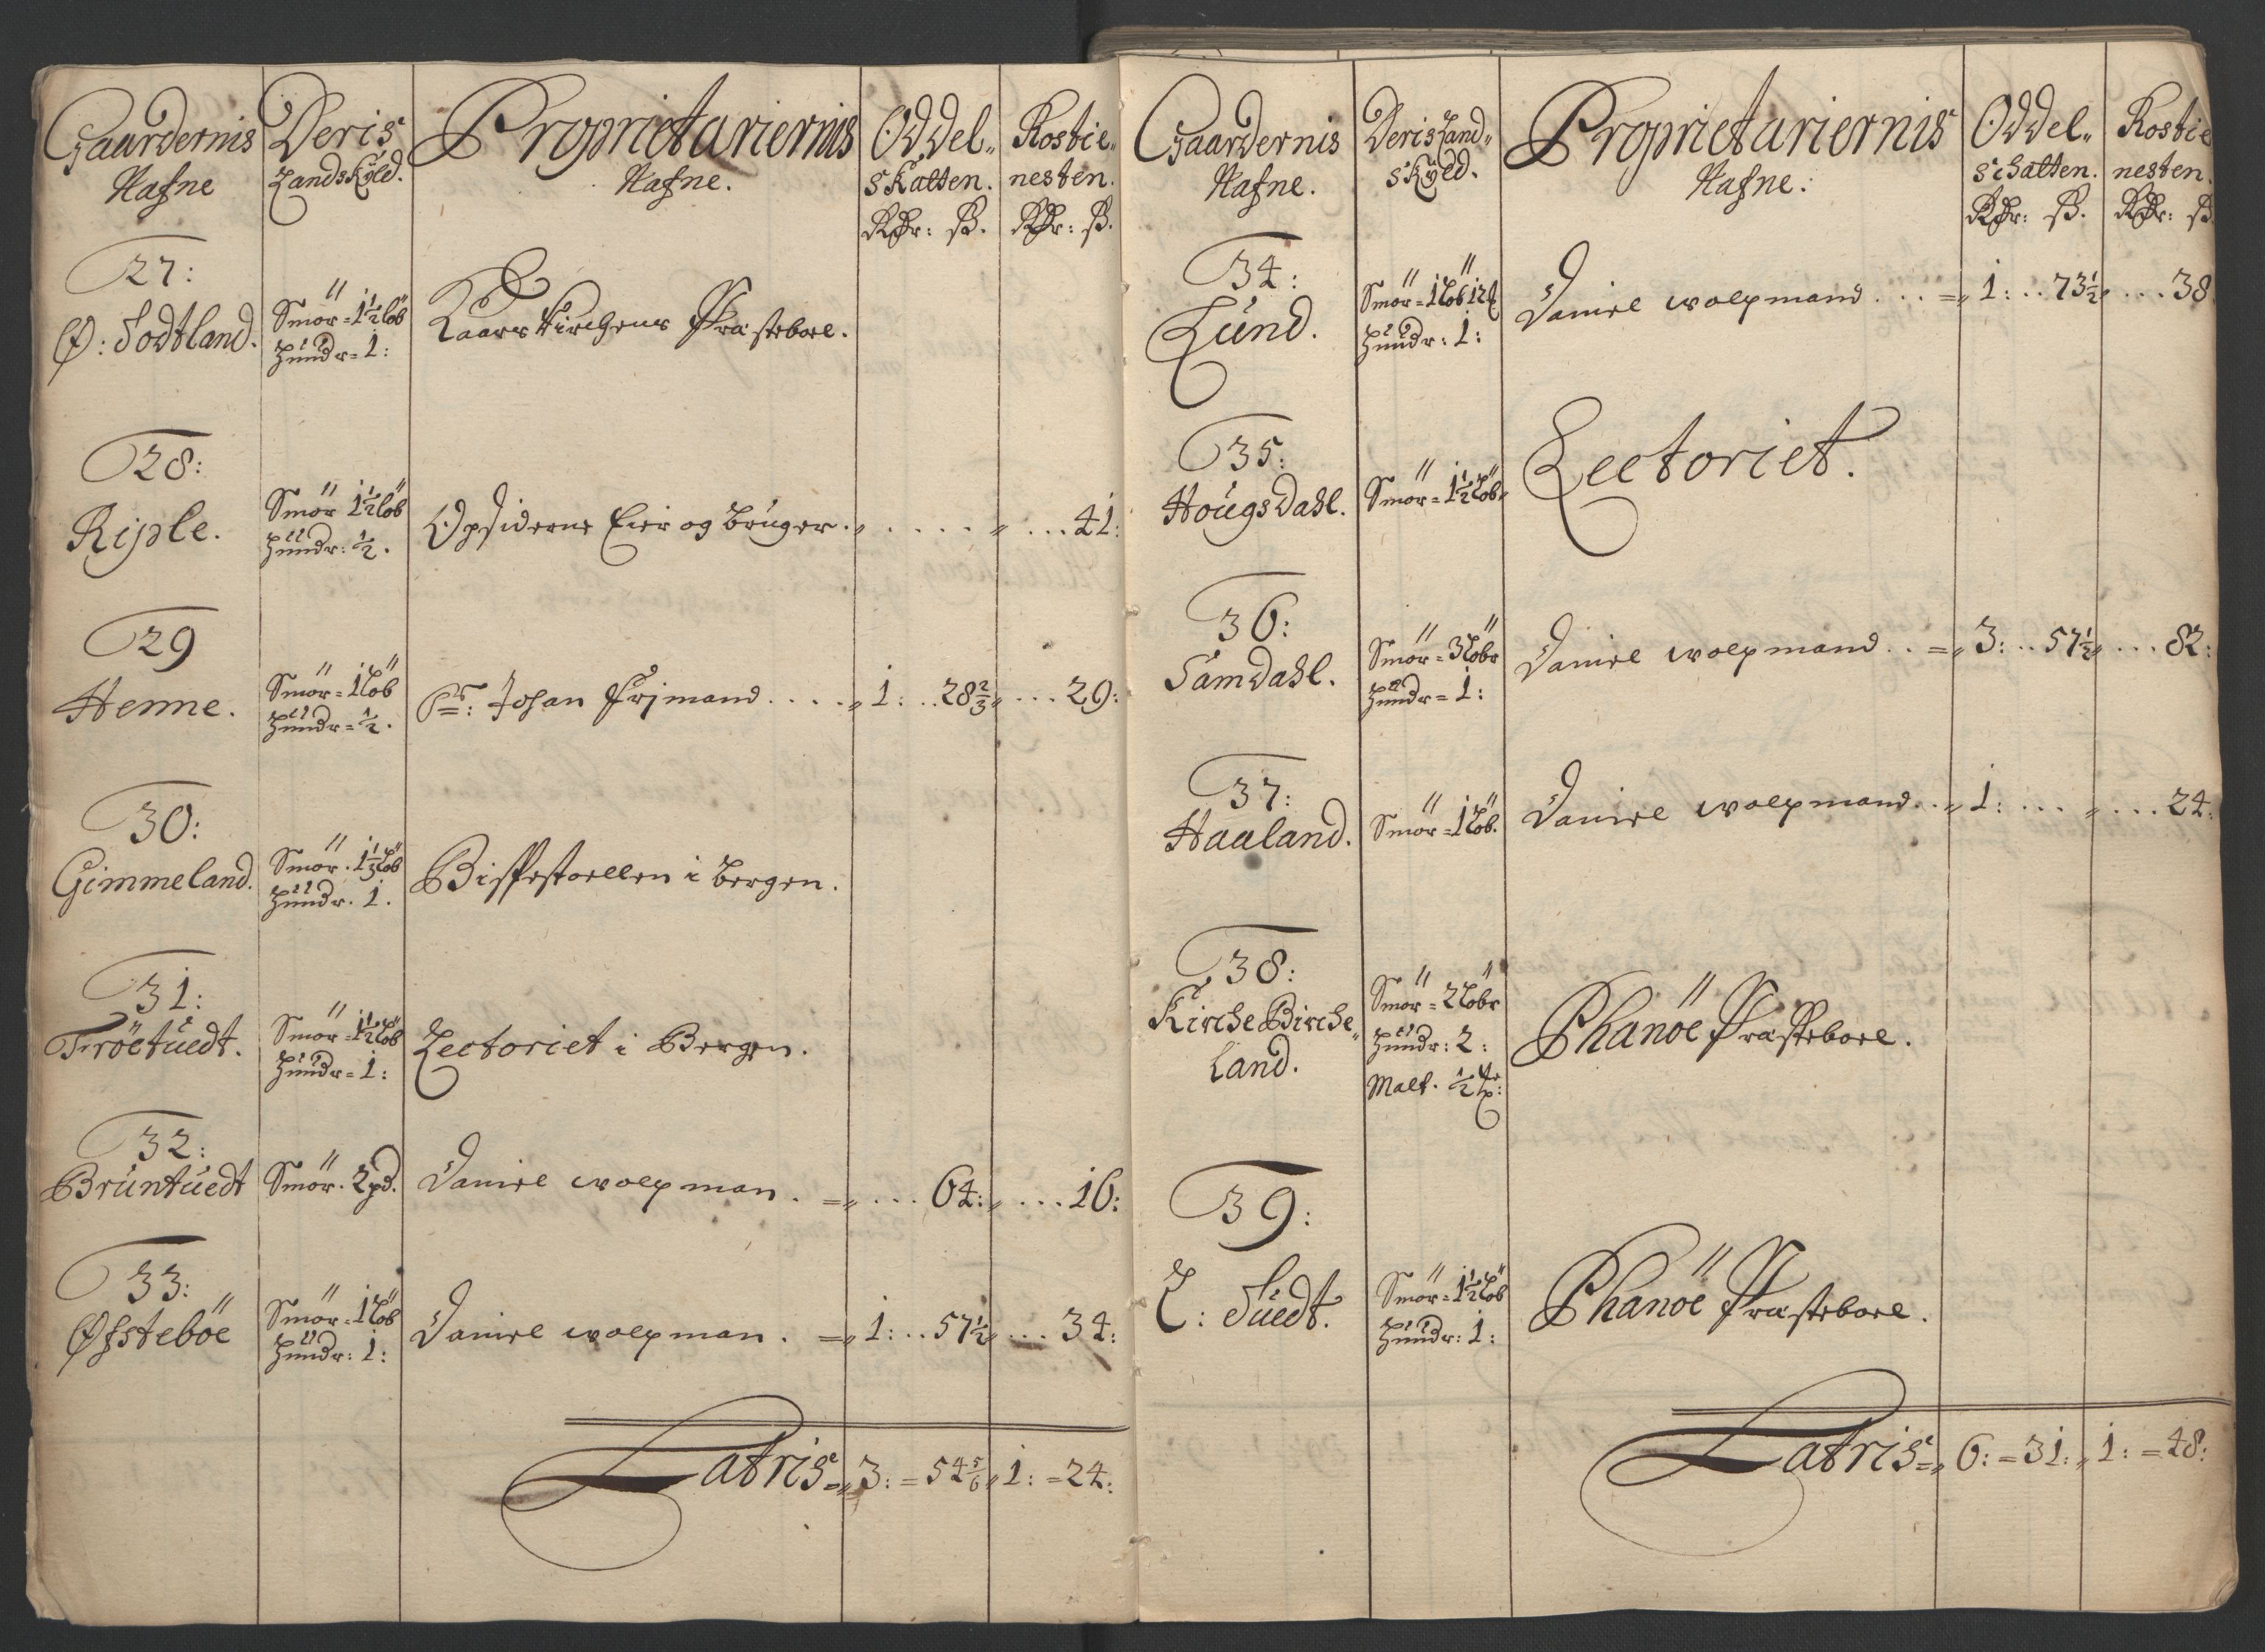 Gaardernis
Nafne
Deris
Landskyld.
Proprietariernis
Nafne.
Oddel-
skatten.
Rdr: ß.
Rostie-
nesten.
Rdr: ß.
27:
Ø: Sodtland.
Smör = 1½ löb
Hundr = 1:
Kaars Kirchens Præsteboel.
28:
Riple.
Smör 1½ löb
Hundr: ½.
Opsiderne Eier og bruger . . . . . . . . 41:
29
Henne.
Smör = 1 Löb
Hundr = ½.
Sr: Johan Frimand . . . . 1: . . 28⅔ . . . 29:
30:
Gimmeland.
Smör. 1⅓ Löb
Hundr. 1.
Bispestoellen i bergen.
31:
Tröetuedt.
Smör = 1½ Löb
Hundr = 1:
Lectoriet i Bergen.
32:
Bruntuedt
Smör. 2 pd.
Daniel wolpman . = . . . 64: . . . 16:
33:
Øfsteböe
Smör = 1 Löb
Hundr: 1:
Daniel wolpman . = 1: . . 57½ . . . 34:
Latris = 3: = 54⅚ 1: = 24:
Gaardernis
Nafne.
Deris Land-
skyld.
Proprietariernis
Nafne.
Oddel-
schatten.
Rdr: ß.
Rostie
nesten.
Rdr: ß
34:
Lund.
Smör = 1 Löb 12
Hundr: 1:
Daniel wolpmand . . . = 1: . . 73½ . . . 38
35:
Hougsdahl.
Smör = 1½ Löb
Lectoriet.
36:
Samdahl.
Smör = 3 Löbr
Hundr = 1:
Daniel wolpmand . . = 3: . . 57½ . . . 82:
37:
Haaland.
Smör = 1 Löb.
Daniel wolpmand . . 1: . . . . . . 24:
38:
Kirche Birche-
land.
Smör = 2 Löbr
Hundr: 2:
Malt. ½
Phanöe Præsteboel.
39:
L: Suedt.
Smör = 1½ Löb
Hundr: 1:
Phanöe Præsteboel.
Latris = 6: = 31: 1: = 48: